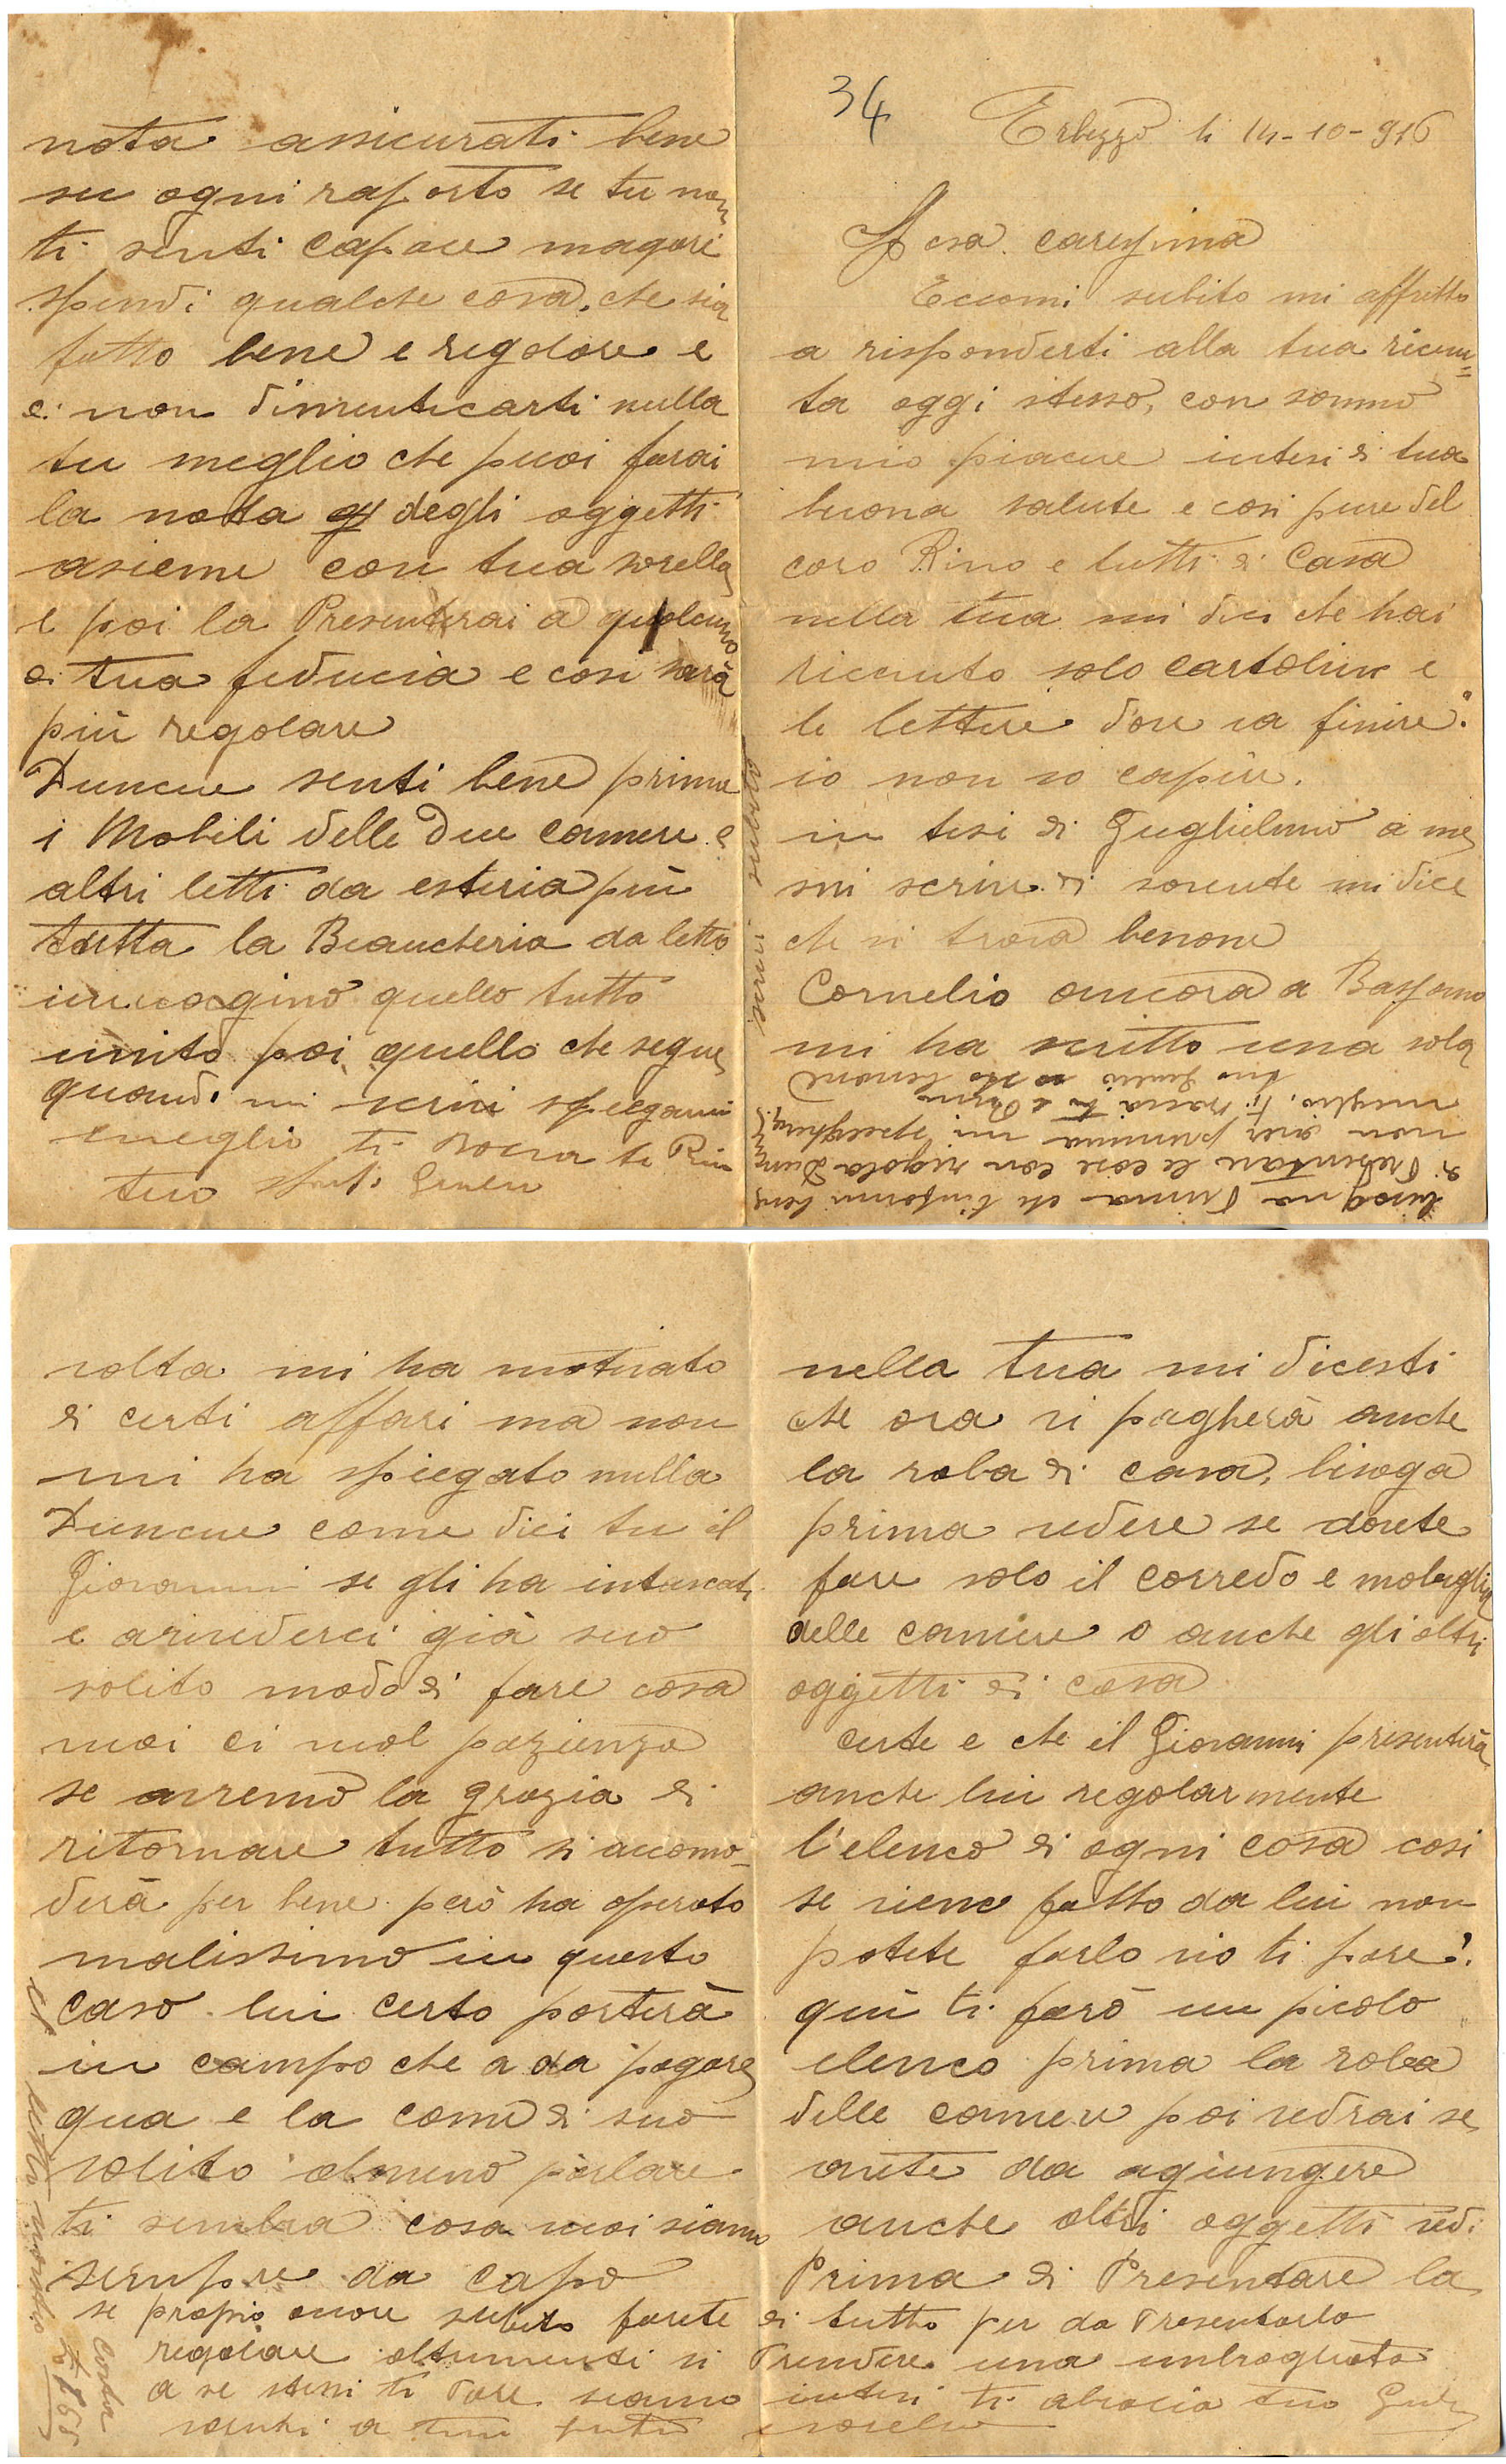 34
Erbezzo li 14-10-916
Rosa carissima
Eccomi subito mi affretto
a risponderti alla tua ricevu=
ta oggi stesso, con sommo
mio piacere intesi di tua
buona salute e cosi pure del
caro Rino e tutti di Casa
nella tua mi dici che hai
ricevuto solo cartoline e
le lettere dove va finire?
io non so capire.
in tesi di Guglielmo a me
mi scrive di sovente mi dice
che si trova benone
Cornelio ancora a Bassano
mi ha scritto una sola
volta mi ha motivato
di certi affari ma non
mi ha spiegato nulla
Duncue come dici tu il
Giovanni se gli ha intascati
e arivederci già suo
solito modo di fare cosa
vuoi ci vuol pazienza
se avremo la grazia di
ritornare tutto si accomo-
derà per bene però ha operato
malissimo in questo
caso lui certo porterà
in campo che a da pagare
qua e la come di suo
solito almeno parlare
ti sembra cosa vuoi siamo
sempre da capo
nella tua mi dicesti
che ora si pagherà anche
la roba di casa, bisoga
prima vedere se dovete
fare solo il corredo e mobiglia
delle camere o anche gli altri
oggetti di casa
certe e che il Giovanni presenterà
anche lui regolarmente
l'elenco di ogni cosa cosi
se viene fatto da lui non
potete farlo vio ti pare?
qui ti farò un picolo
elenco prima la roba
delle camere poi vedrai se
avete da agiungere
anche altri oggetti vedi
Prima di Presentare la
nota assicurati bene
su ogni raporto se tu non
ti senti capace magari
spendi qualche cosa, che sia
fatto bene e regolare e
e non dimenticarti nulla
tu meglio che puoi farai
la nota degli oggetti
asieme con tua sorella
e poi la Presenterai a qualcuno
di tua fiducia e cosi sarà
più regolare
Duncue senti bene prima
i Mobili delle Due camere e
altri letti da esteria più
tutta la Biancheria da letto
immagino quello tutto
unito poi quello che segue
quando mi scrivi spiegami
meglio ti Bacia te Rin
tuo
bisogna Prima che t'informi bene
di Presentare le cose con regola Dunque
non sia premura mi spiegherai
meglio, ti bacia te e Rino
tuo sto benone
se propio avere subito farete di tutto per da Presentarlo
regolare altrimenti si Prendere una imbrogliata
a se stessi ti Pare siamo intesi ti abracia tuo
saluti a tua